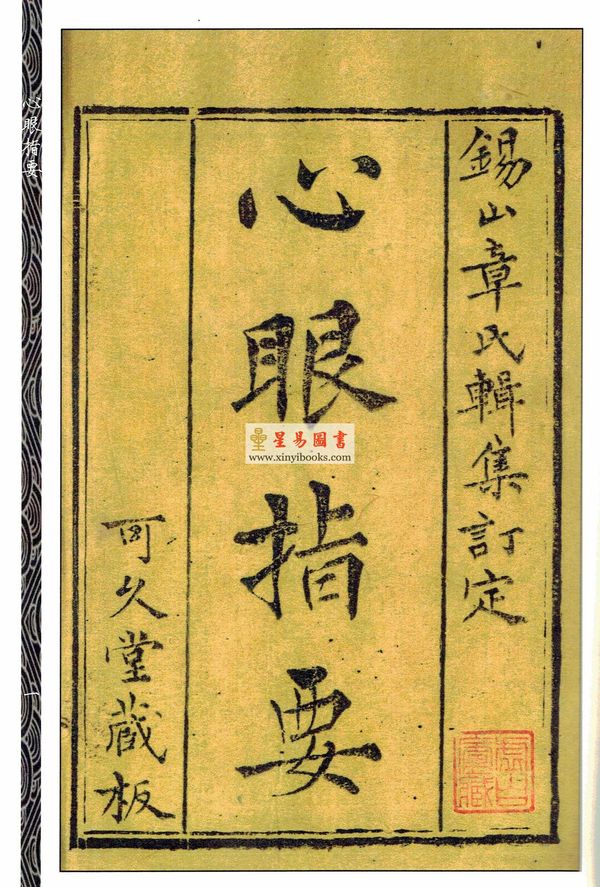 錫山章氏輯集訂定
心眼指要
可久堂蔵板
星易圖書
www.xinyibooks.com
心眼指要
一